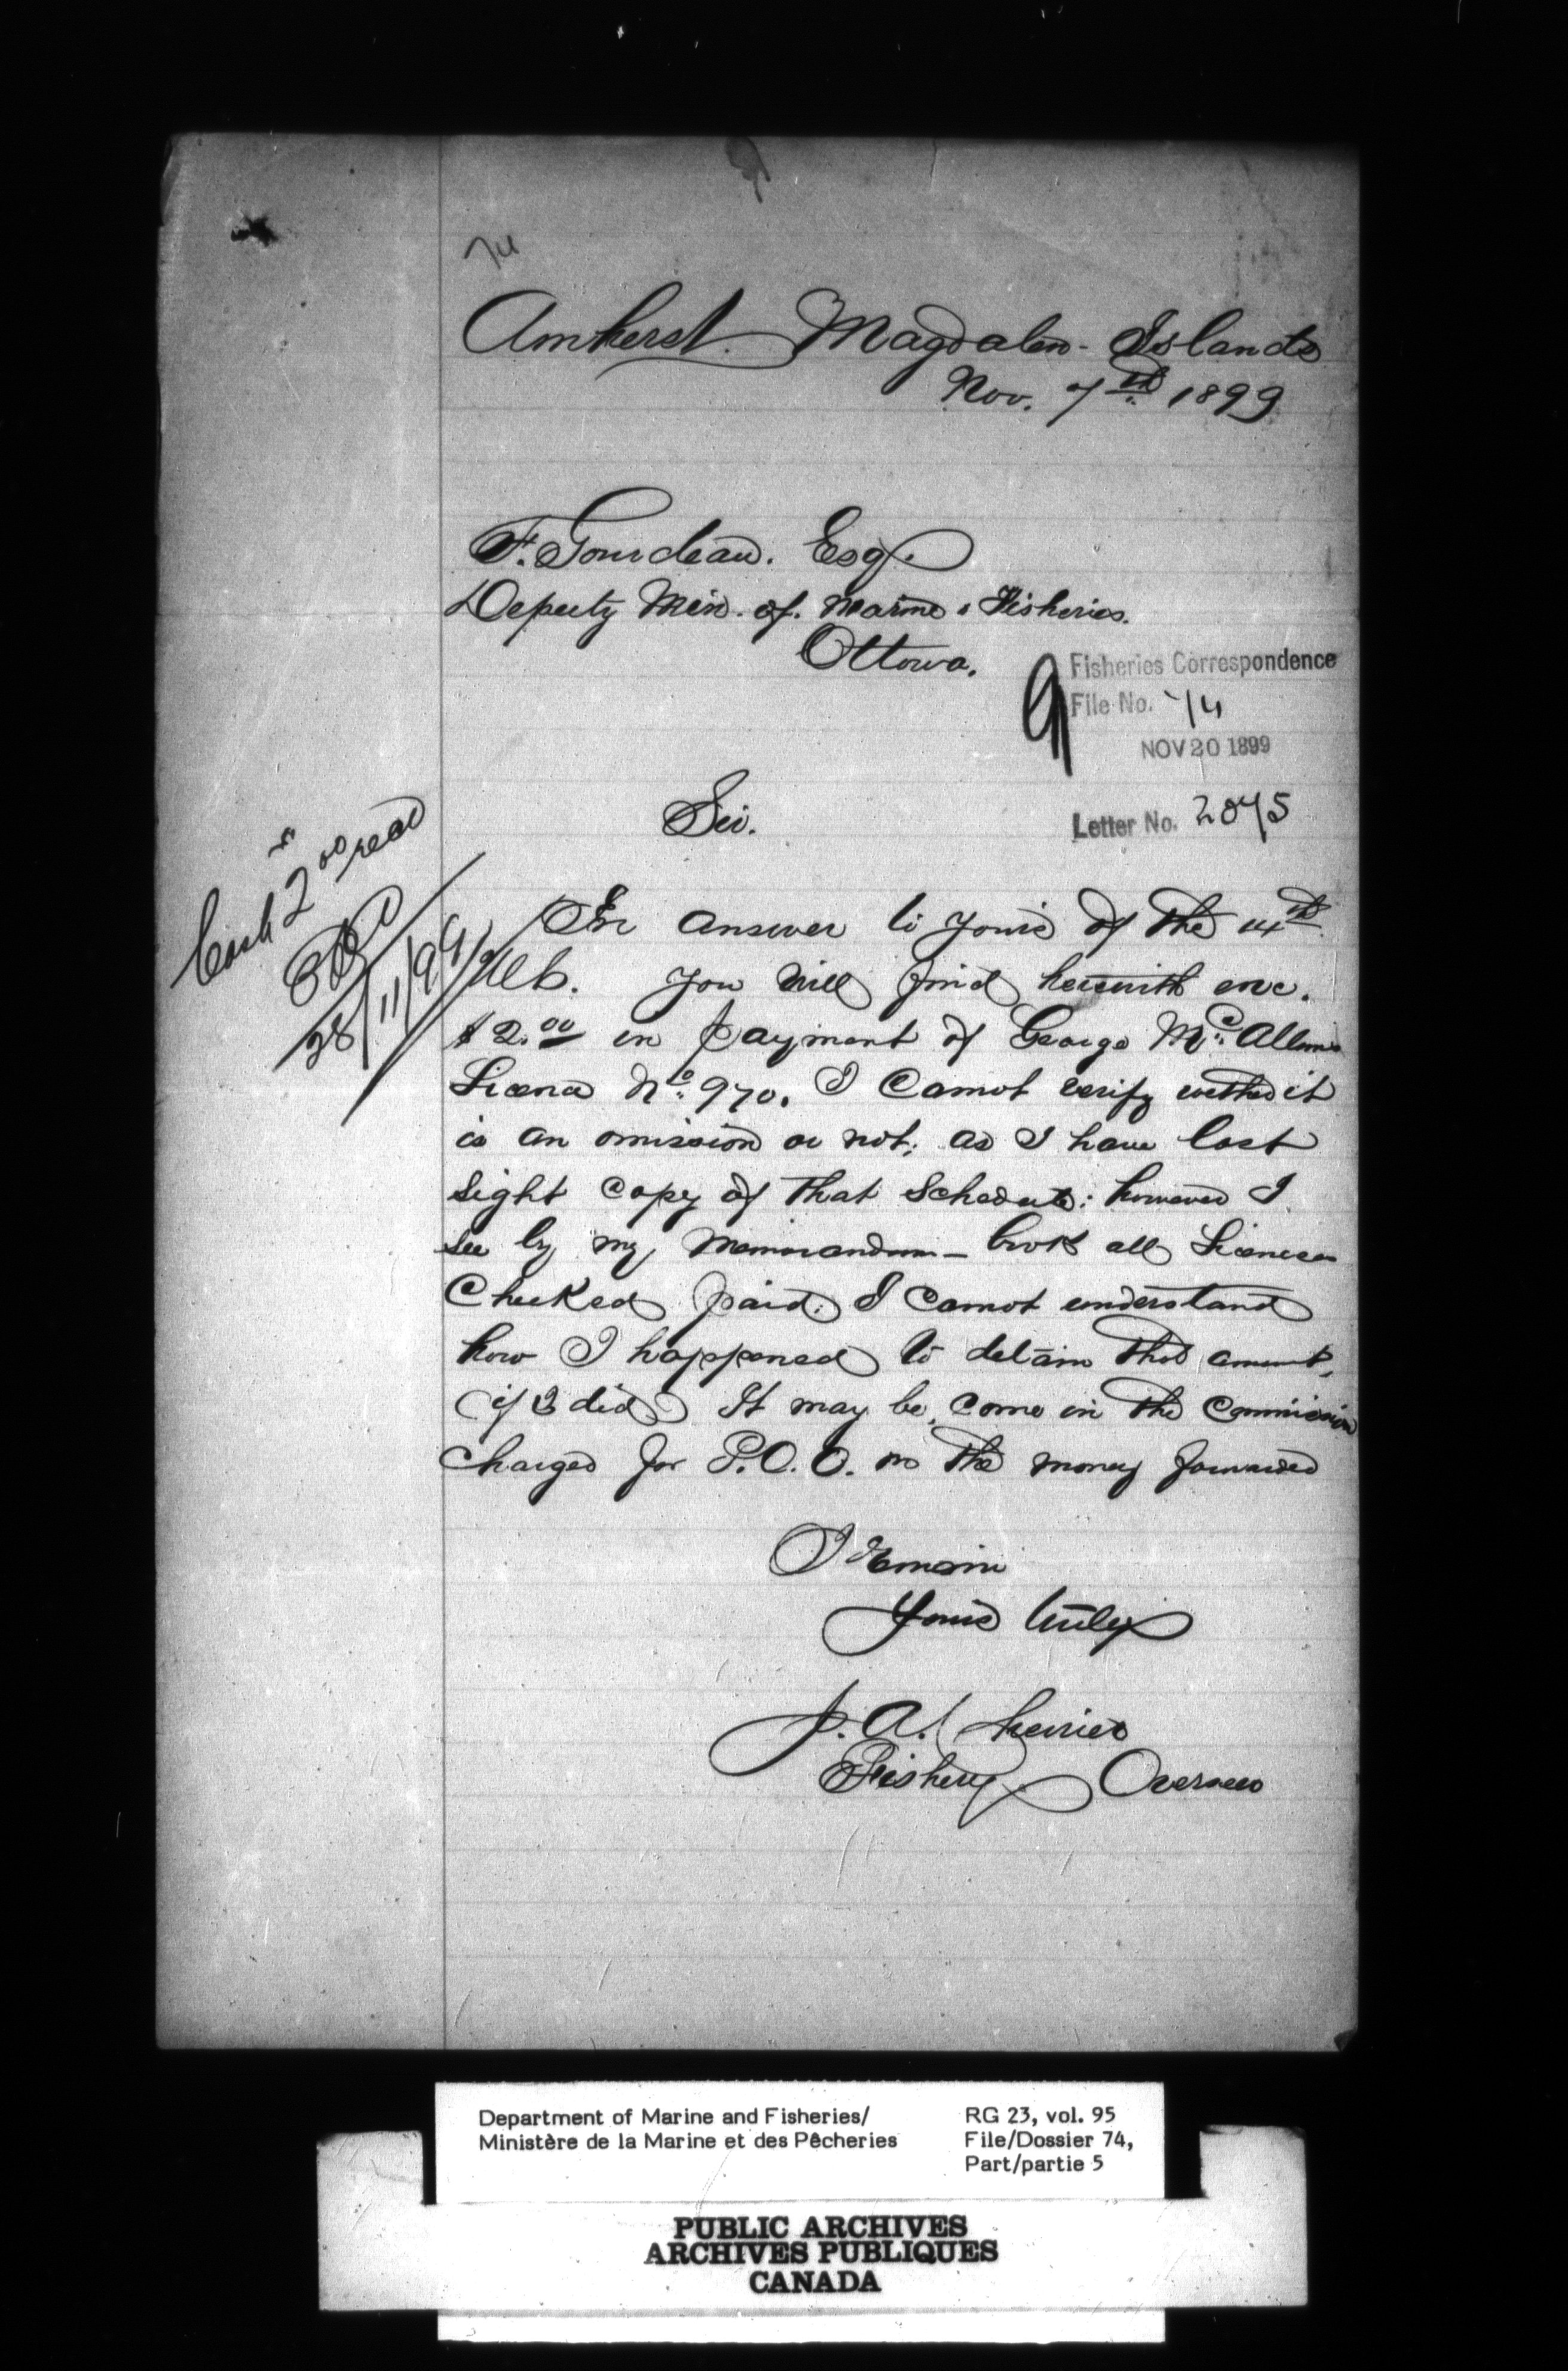 74
Amherst. Magdalen - Islands
Nov. 7th 1899
F. Gourdeau. Esq.
Deputy Min. of. Marine & Fisheries.
Ottowa.
9
Fisheries Correspondence
File No. 74
NOV 20 1899
Letter No. 2875
Sir.
Cash $2.00 recd
28/11/99
In answer to yours of the 14th
Ulto. You will find herewith enc.
$2.00 in payment of George McCallum
License No. 970. I cannot verify wether it
is an omission or not; as I have lost
sight copy of that Schedule: however I
see by my Memorandum - book all Licenses
Checked paid: I cannot understand
how I happened to detain that amount,
(if I did) It may be, come in the Commission
charged for P.O.O. on the money forwarded
I Remain
Yours truly
J. A. Chevrier
Fishery Overseer
Department of Marine and Fisheries/
Ministère de la Marine et des Pêcheries
RG 23, vol. 95
File/Dossier 74,
Part/partie 5
PUBLIC ARCHIVES
ARCHIVES PUBLIQUES
CANADA